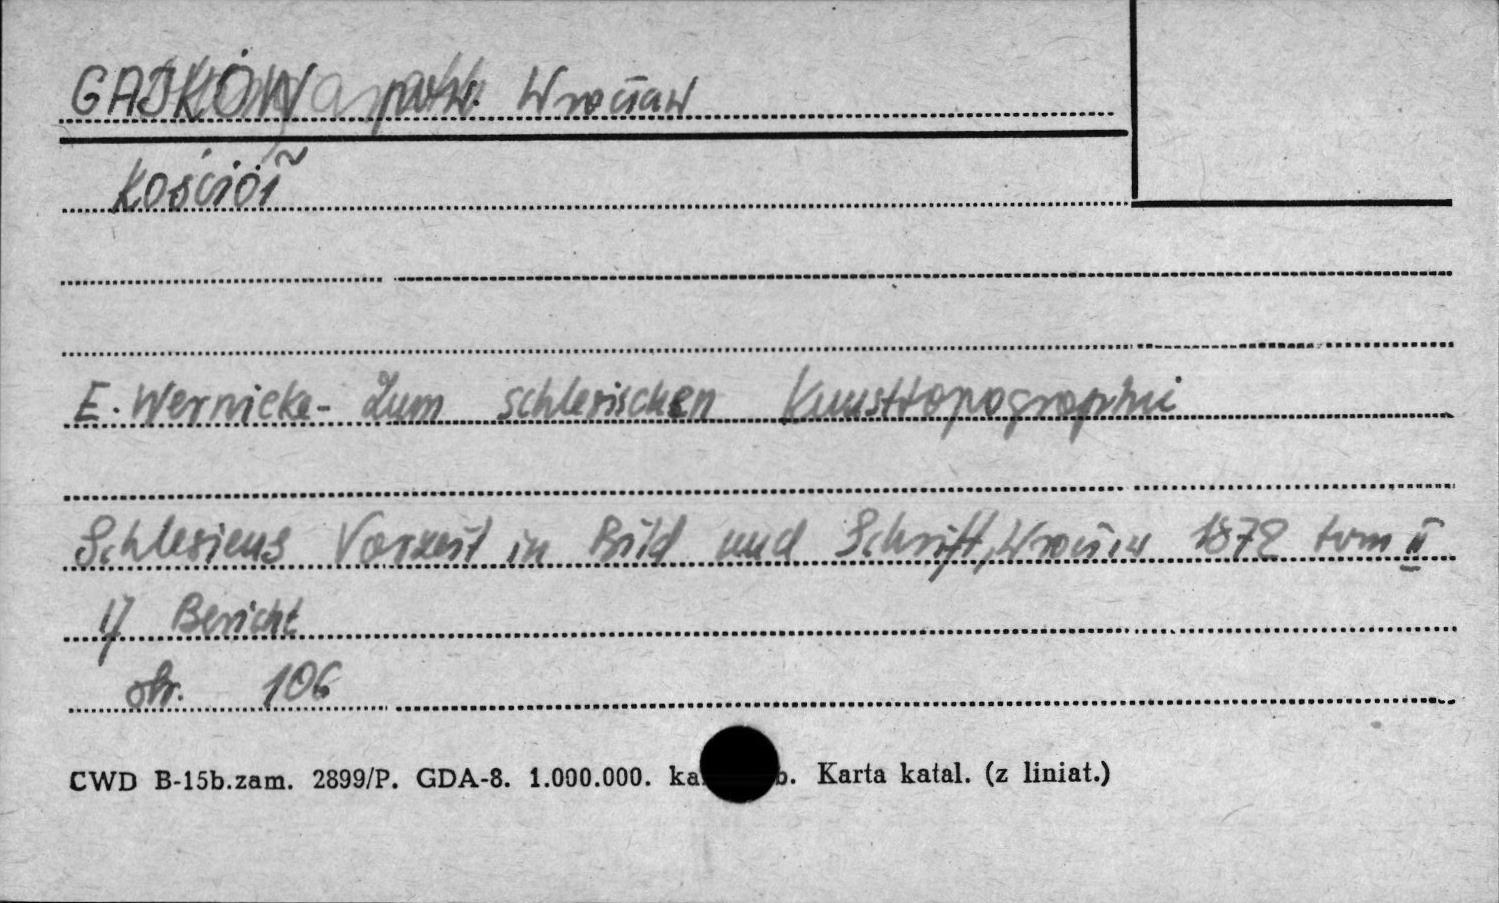 GAJKÓW pow. Wrocław
Kościół
E. Wernicke - Zum schlesischen Kunsttopographii
Schlesiens Vorzeit in Bild und Schrift, Wrocław 1872 tom II
17 Bericht
str. 106
CWD B-15b.zam. 2899/P. GDA-8. 1.000.000. Karta katal. (z liniat.)